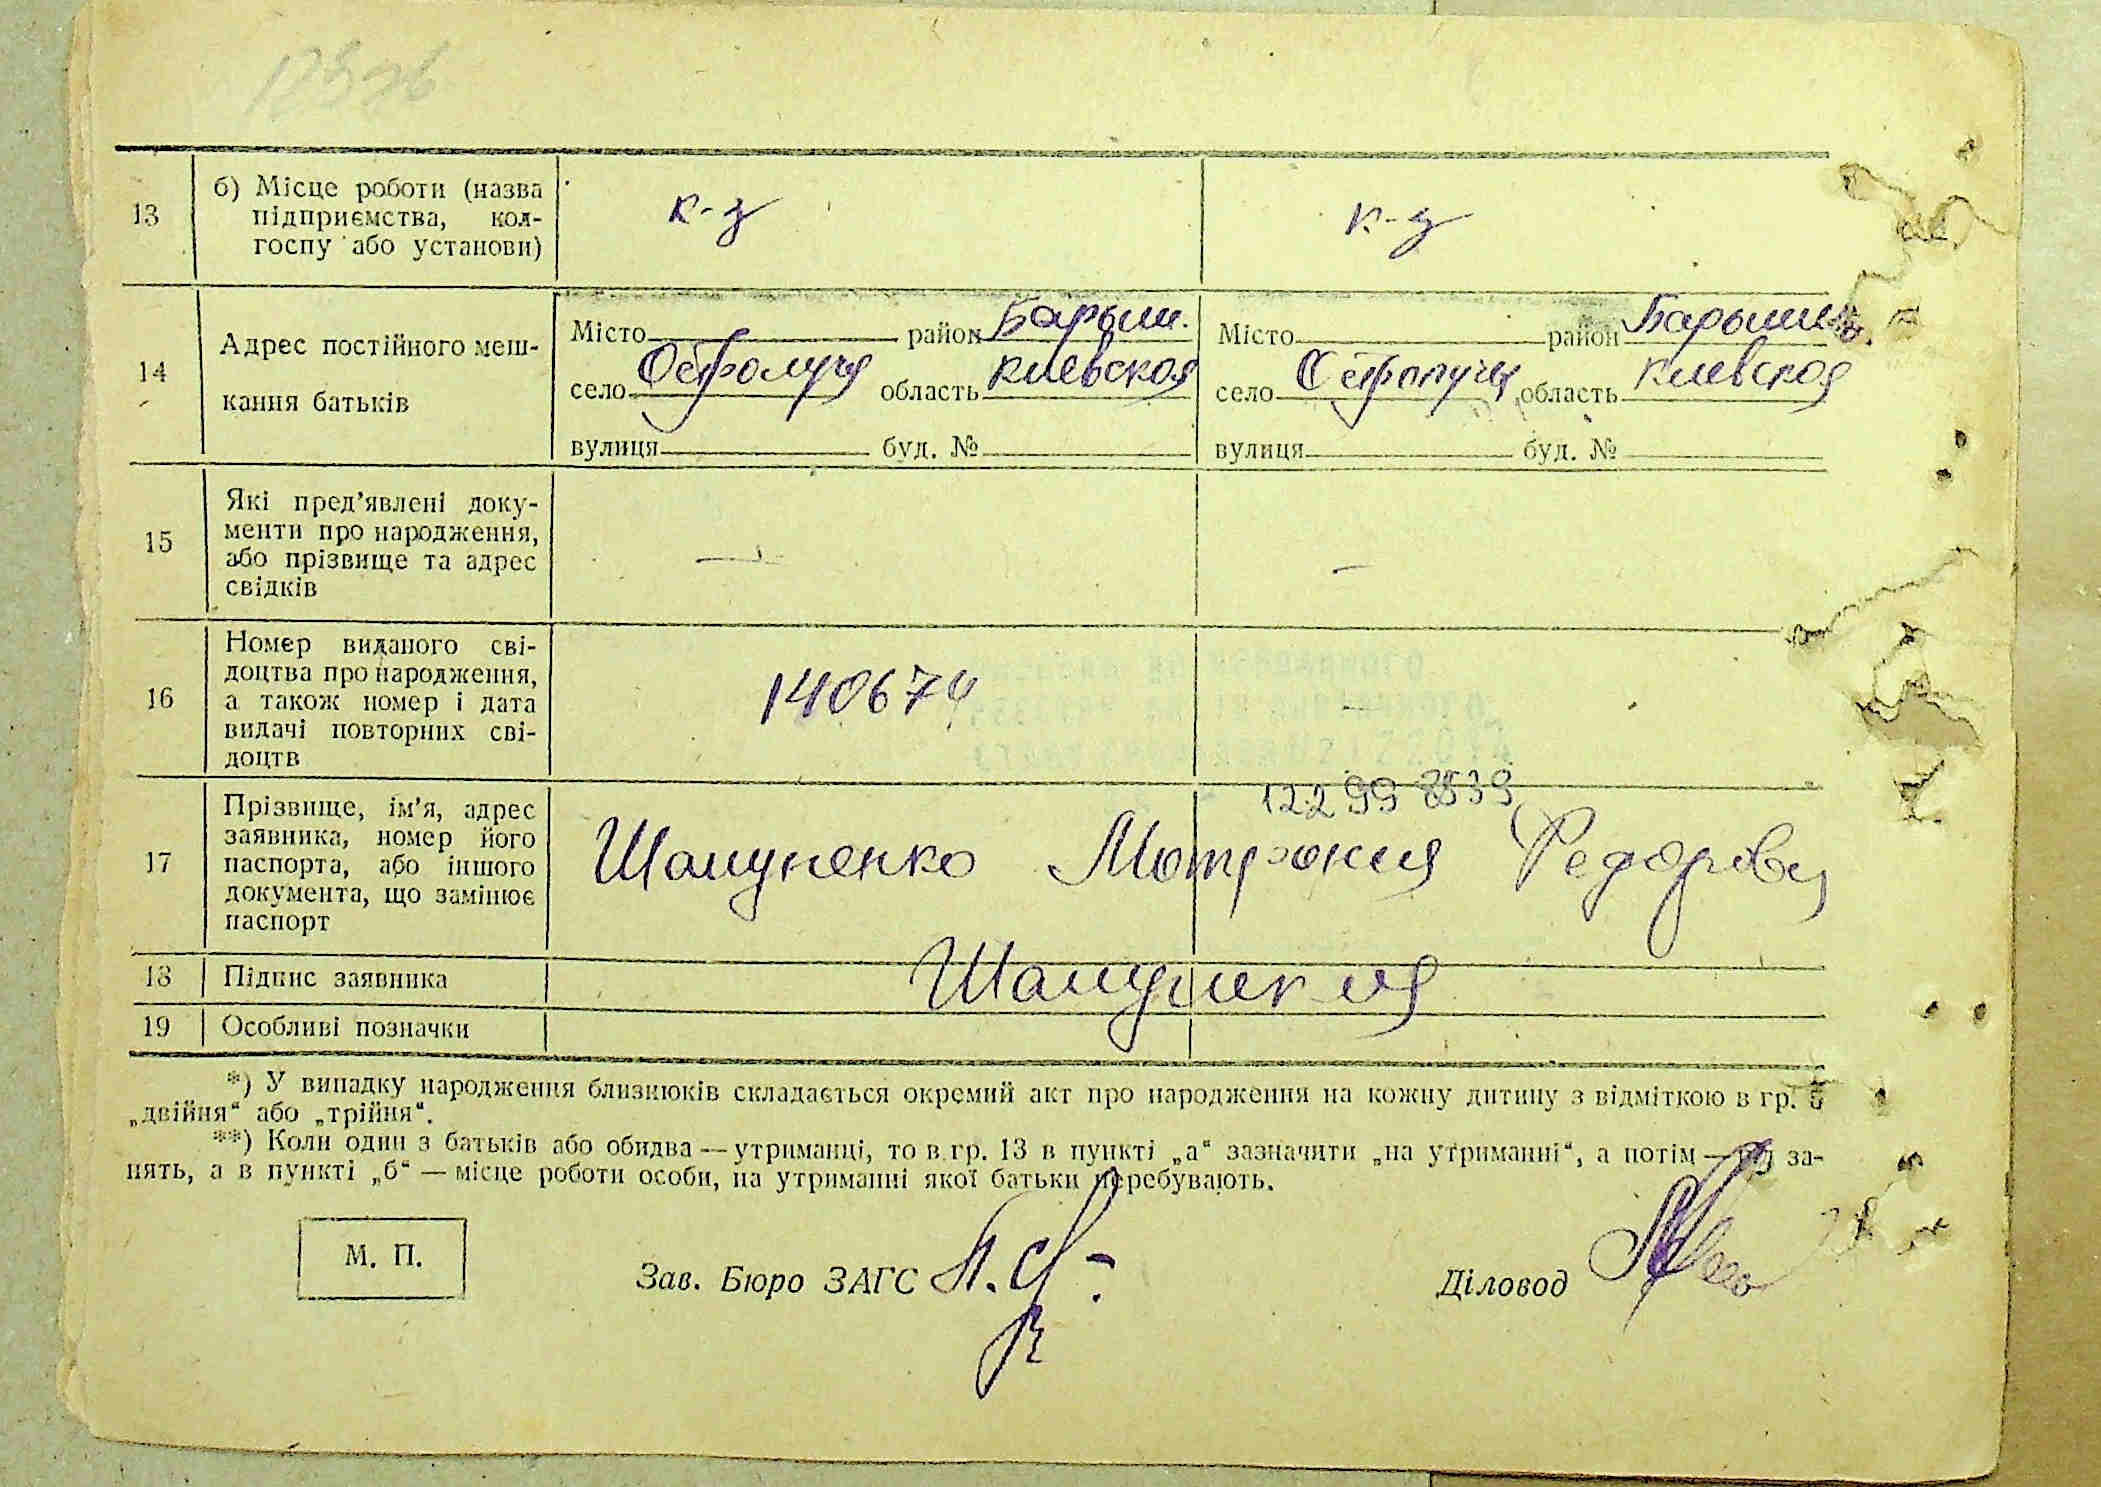 13 б) Місце роботи (назва
підприємства, кол-
госпу або установи)
к-з к-з
14 Адрес постійного меш-
кання батьків
Місто район Барыш. Місто район Барышев.
село Остролучя область Киевская село Остролучя область Киевская
вулиця буд. № вулиця буд. №
15 Які пред’явлені доку-
менти про народження,
або прізвище та адрес
свідків
— —
16 Номер виданого сві-
доцтва про народження,
а також номер і дата
видачі повторних сві-
доцтв
140674 —
17 Прізвище, ім’я, адрес
заявника, номер його
паспорта, або іншого
документа, що замінює
паспорт
Шамуненко Мотрония Федоровн
18 Підпис заявника
19 Особливі позначки
*) У випадку народження близнюків складається окремий акт про народження на кожну дитину з відміткою в гр. 5
„двійня“ або „трійня“.
**) Коли один з батьків або обидва — утриманці, то в гр. 13 в пункті „а“ зазначити „на утриманні“, а потім — рід за-
нять, а в пункті „б“ — місце роботи особи, на утриманні якої батьки перебувають.
М. П.
Зав. Бюро ЗАГС Діловод